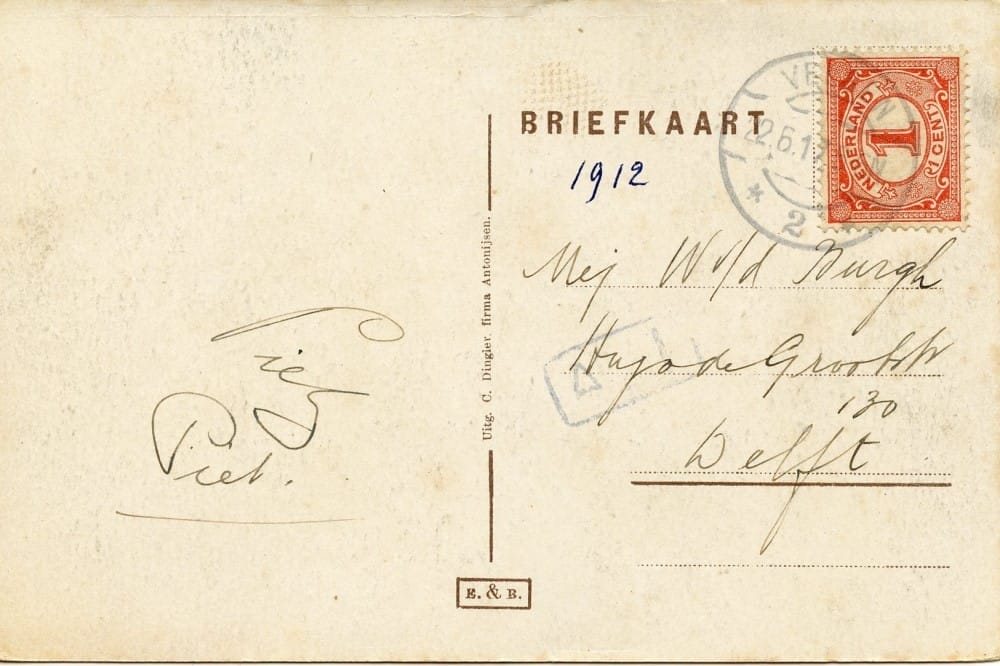 BRIEFKAART
1912
22.6.1
2
NEDERLAND
1
1 CENT
Mej W v/d Burgh
Hugo de Grootstr
130
Delft
Piet
Piet.
Uitg. C. Dingier, firma Antonijsen.
E. & B.